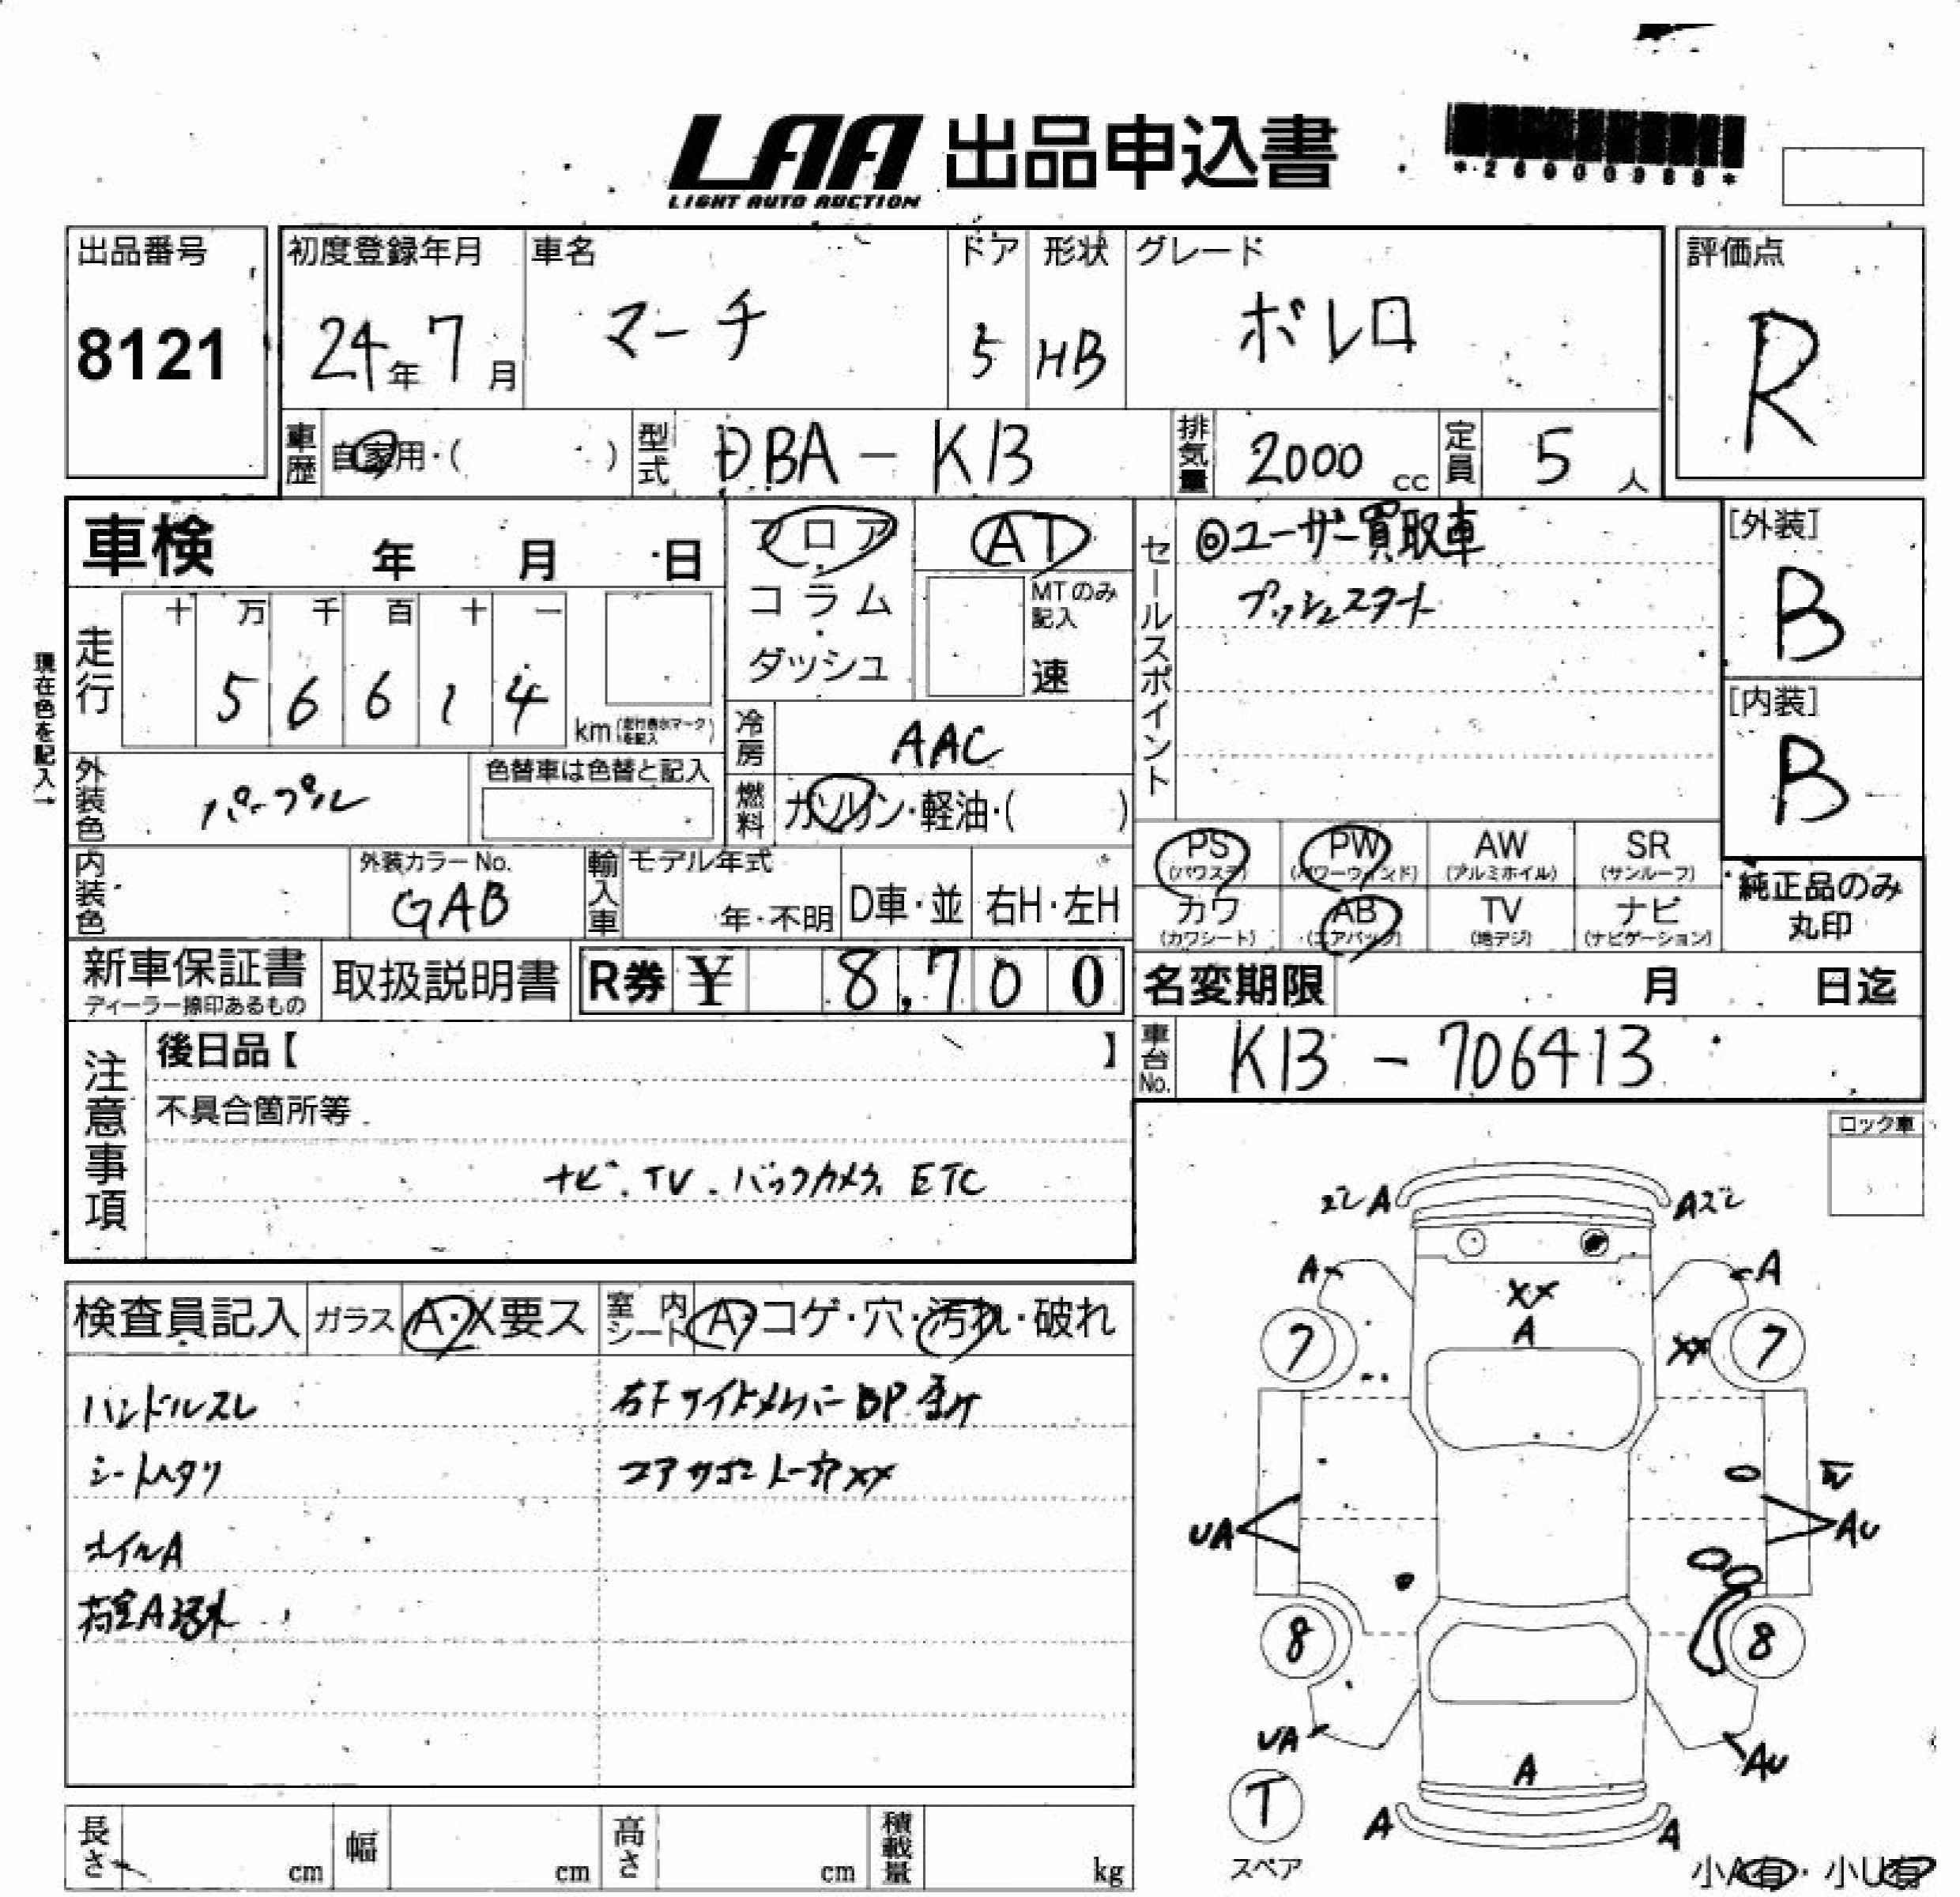 LAA 出品申込書
LIGHT AUTO AUCTION
*26900988*
出品番号
8121
初度登録年月
24年7月
車名
マーチ
ドア
5
形状
HB
グレード
ボレロ
評価点
R
車歴
自家用・( )
型式
DBA - K13
排気量
2000 cc
定員
5 人
車検 年 月 日
フロア
コラム
・
ダッシュ
AT
MTのみ
記入
速
セールスポイント
◎ユーザー買取車
プッシュスタート
[外装]
B
[内装]
B
現在色を記入→
走行
十 万 千 百 十 一
5 6 6 1 4
km (走行表示マーク)
を記入
冷房
AAC
外装色
パープル
色替車は色替と記入
燃料
ガソリン・軽油・( )
PS
(パワステ)
PW
(パワーウィンド)
AW
(アルミホイル)
SR
(サンルーフ)
カワ
(カワシート)
AB
(エアバック)
TV
(地デジ)
ナビ
(ナビゲーション)
純正品のみ
丸印
内装色
外装カラーNo.
GAB
輸入車
モデル年式
年・不明
D車・並
右H・左H
新車保証書
ディーラー捺印あるもの
取扱説明書
R券 ¥ 8,700
名変期限 月 日迄
車台No.
K13 - 706413
注意事項
後日品【 】
不具合箇所等
ナビ.TV.バックカメラ ETC
ロック車
検査員記入
ガラス
A・X要ス
室内
シート
A・コゲ・穴・汚れ・破れ
ハンドルスレ
シートヘタリ
ホイルA
荷室A汚れ
右Fサイドメンバー BP
コアサポートXX
ズレA
Aズレ
A
A
XX
A
7
XX
7
UA
AU
8
8
UA
AU
A
T
スペア
A
A
小A有・小U有
長さ
cm
幅
cm
高さ
cm
積載量
kg